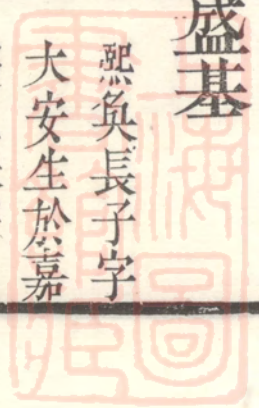 盛基
熙奐長子字
大安生於嘉